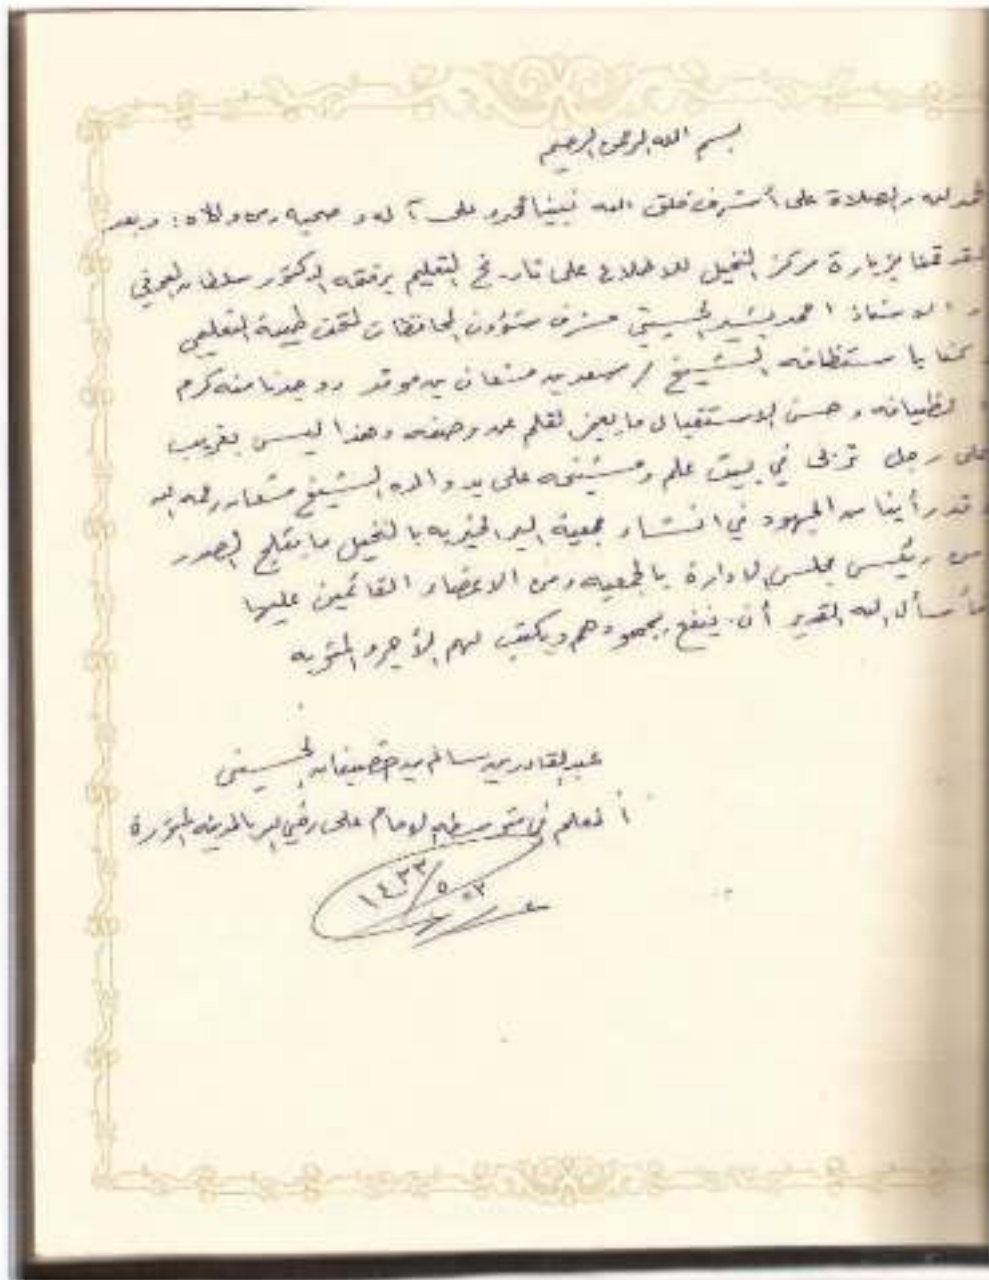 بسم الله الرحمن الرحيم
الحمد لله والصلاة على أشرف خلق الله نبينا محمد وعلى آله وصحبه ومن والاه : وبعد
لقد قمنا بزيارة مركز النخيل للاطلاع على تاريخ التعليم برفقه الدكتور سلطان
والاستاذ احمد بشير الحسيني مشرف شؤون المحافظات لمتحف طيبة التعليمي
وكنا باستظافه الشيخ / سعد بن مشعان بن موقد ووجدنا منه كرم
الظيافه وحسن الاستقبال ما يعجز القلم عن وصفه وهذا ليس بغريب
على رجل تربى في بيت علم ومشيخه على يد والده الشيخ مشعان رحمه الله
وقد رأينا من الجهود في انشاء جمعية البر الخيريه بالنخيل ما يثلج الصدر
من رئيس مجلس الادارة بالجمعيه ومن الاعضاء القائمين عليها
فأسأل الله القدير أن ينفع بجهودهم ويكتب لهم الأجر والمثوبه
عبدالقادر بن سالم بن الحسيني
المعلم في متوسطه الامام علي رضي الله بالمدينه المنورة
١٤٣٣/٥/٣